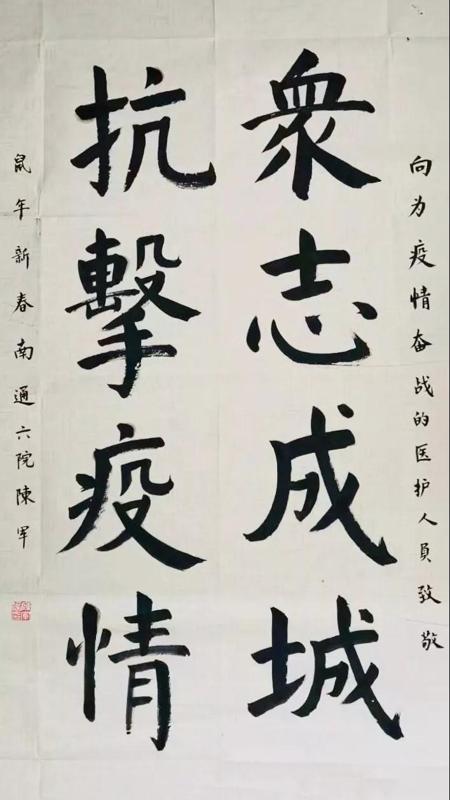 向为疫情奋战的医护人員致敬
衆志成城
抗擊疫情
鼠年新春南通六院陳军